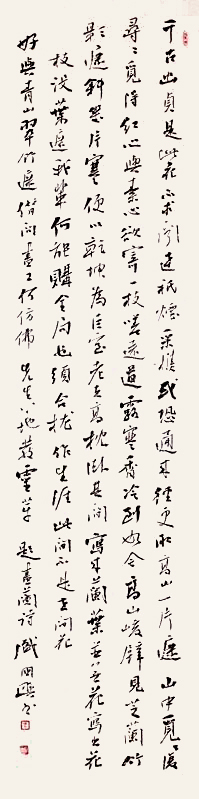 千古幽貞是此花不求聞達祇煙采樵或恐通來徑更高山一片遮山中覓覓復
尋尋覓得紅心與素心欲寄一枝嗟遠道露寒香冷到如今高山峻壁見芝蘭竹
影遮斜幾片寒便以乾坤為巨室老夫高枕臥其間寫來蘭葉並無花寫出花
枝沒葉遮我輩何能購全局也須合攏作生涯此間不是吾間花
好與青山翠竹遮借問畫工何仿佛先生地發靈芽題畫蘭詩